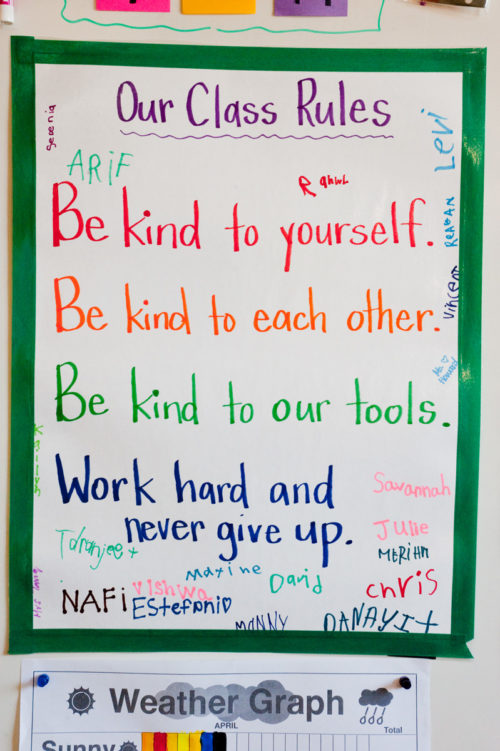 Our Class Rules
Serenia
Levi
ARiF
Rahul
Be kind to yourself.
REAGAN
Be kind to each other.
Vincenn
Be kind to our tools.
Work hard and
Savannah
never give up.
Julie
Taranjee+
MERiHM
Maxine
David
Vishwa
chris
NAFi
EStefani
MANNY
DANAYIt
Weather Graph
APRIL
Total
Sunny